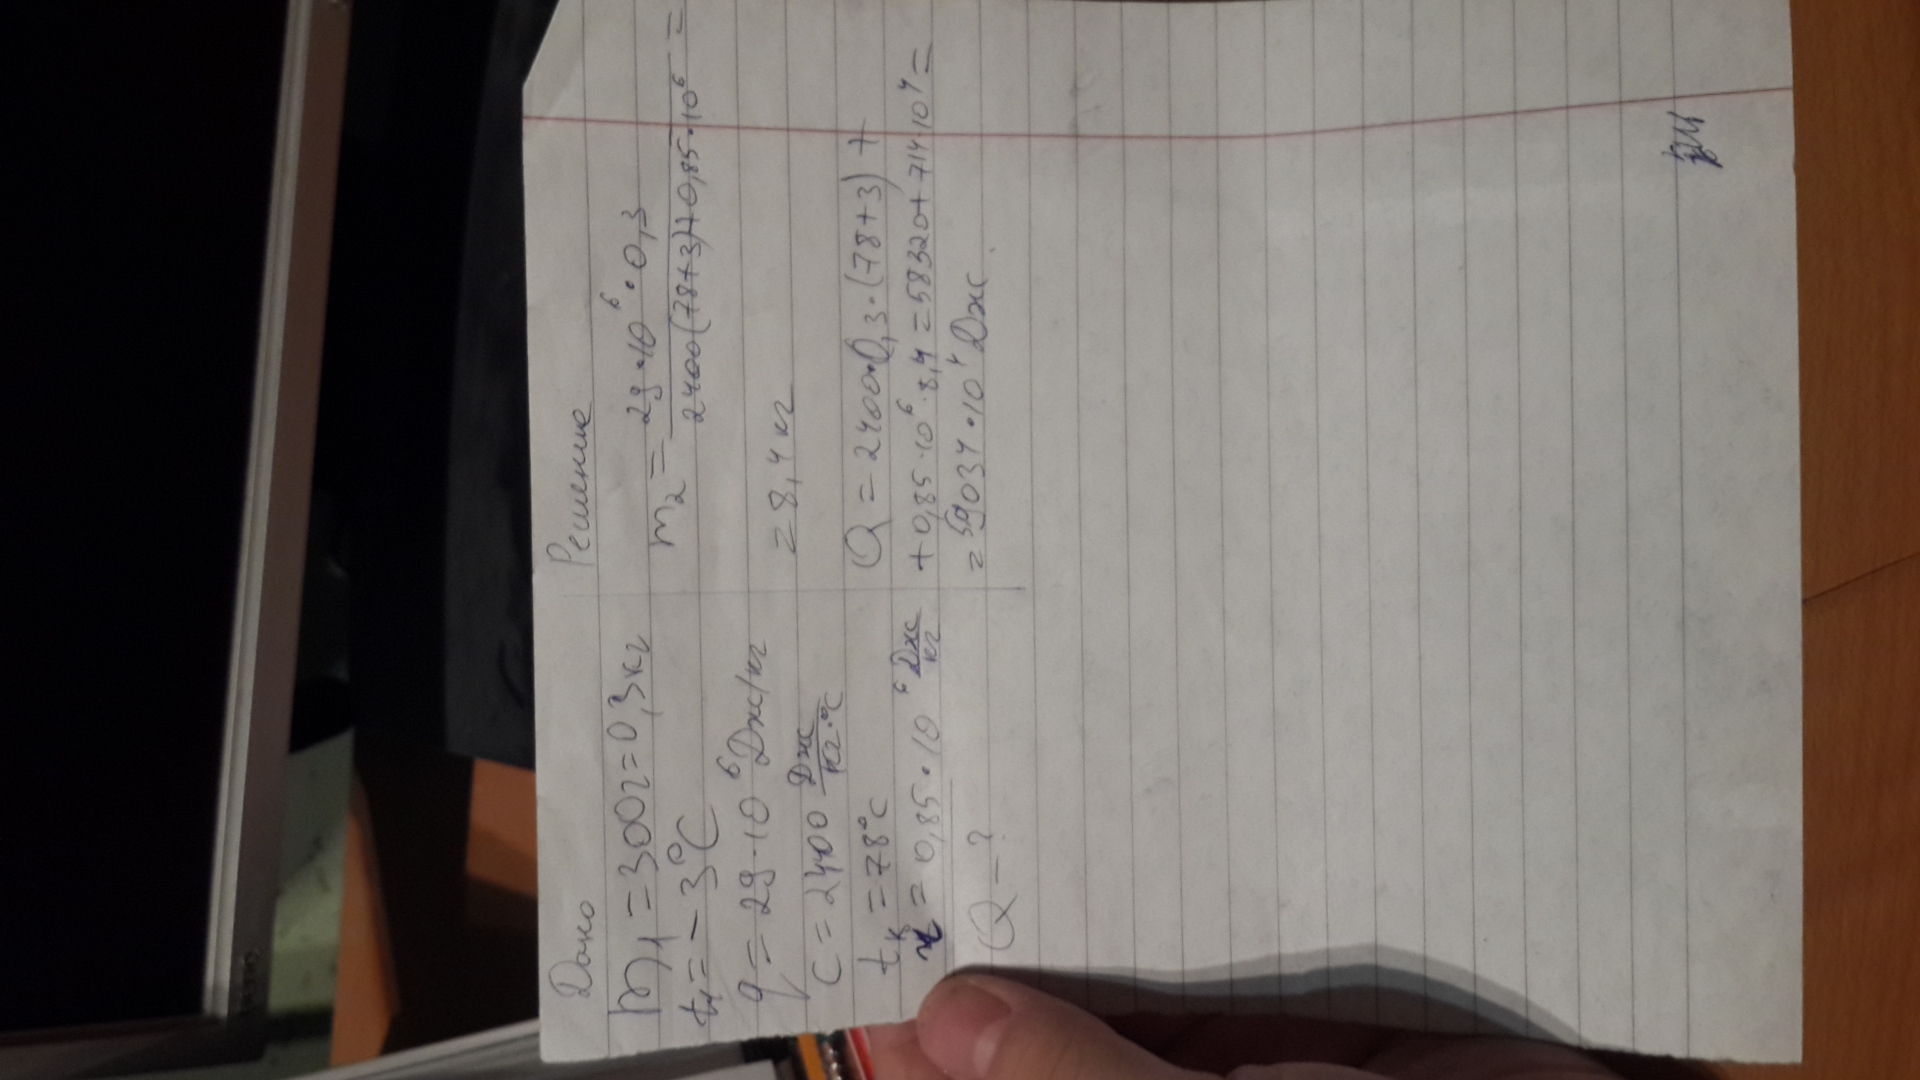 Дано
m₁ = 300г = 0,3кг
t₁ = -3°C
q = 29·10⁶ Дж/кг
c = 2400 Дж/кг·°C
tк = 78°C
= 0,85·10⁶ Дж/кг
Q - ?
Решение
m₂ = 29·10⁶·0,3 / 2400(78+3)+0,85·10⁶ =
= 8,4 кг
Q = 2400·0,3·(78+3) +
+ 0,85·10⁶·8,4 = 58320 + 714·10⁴ =
= 59034·10⁴ Дж